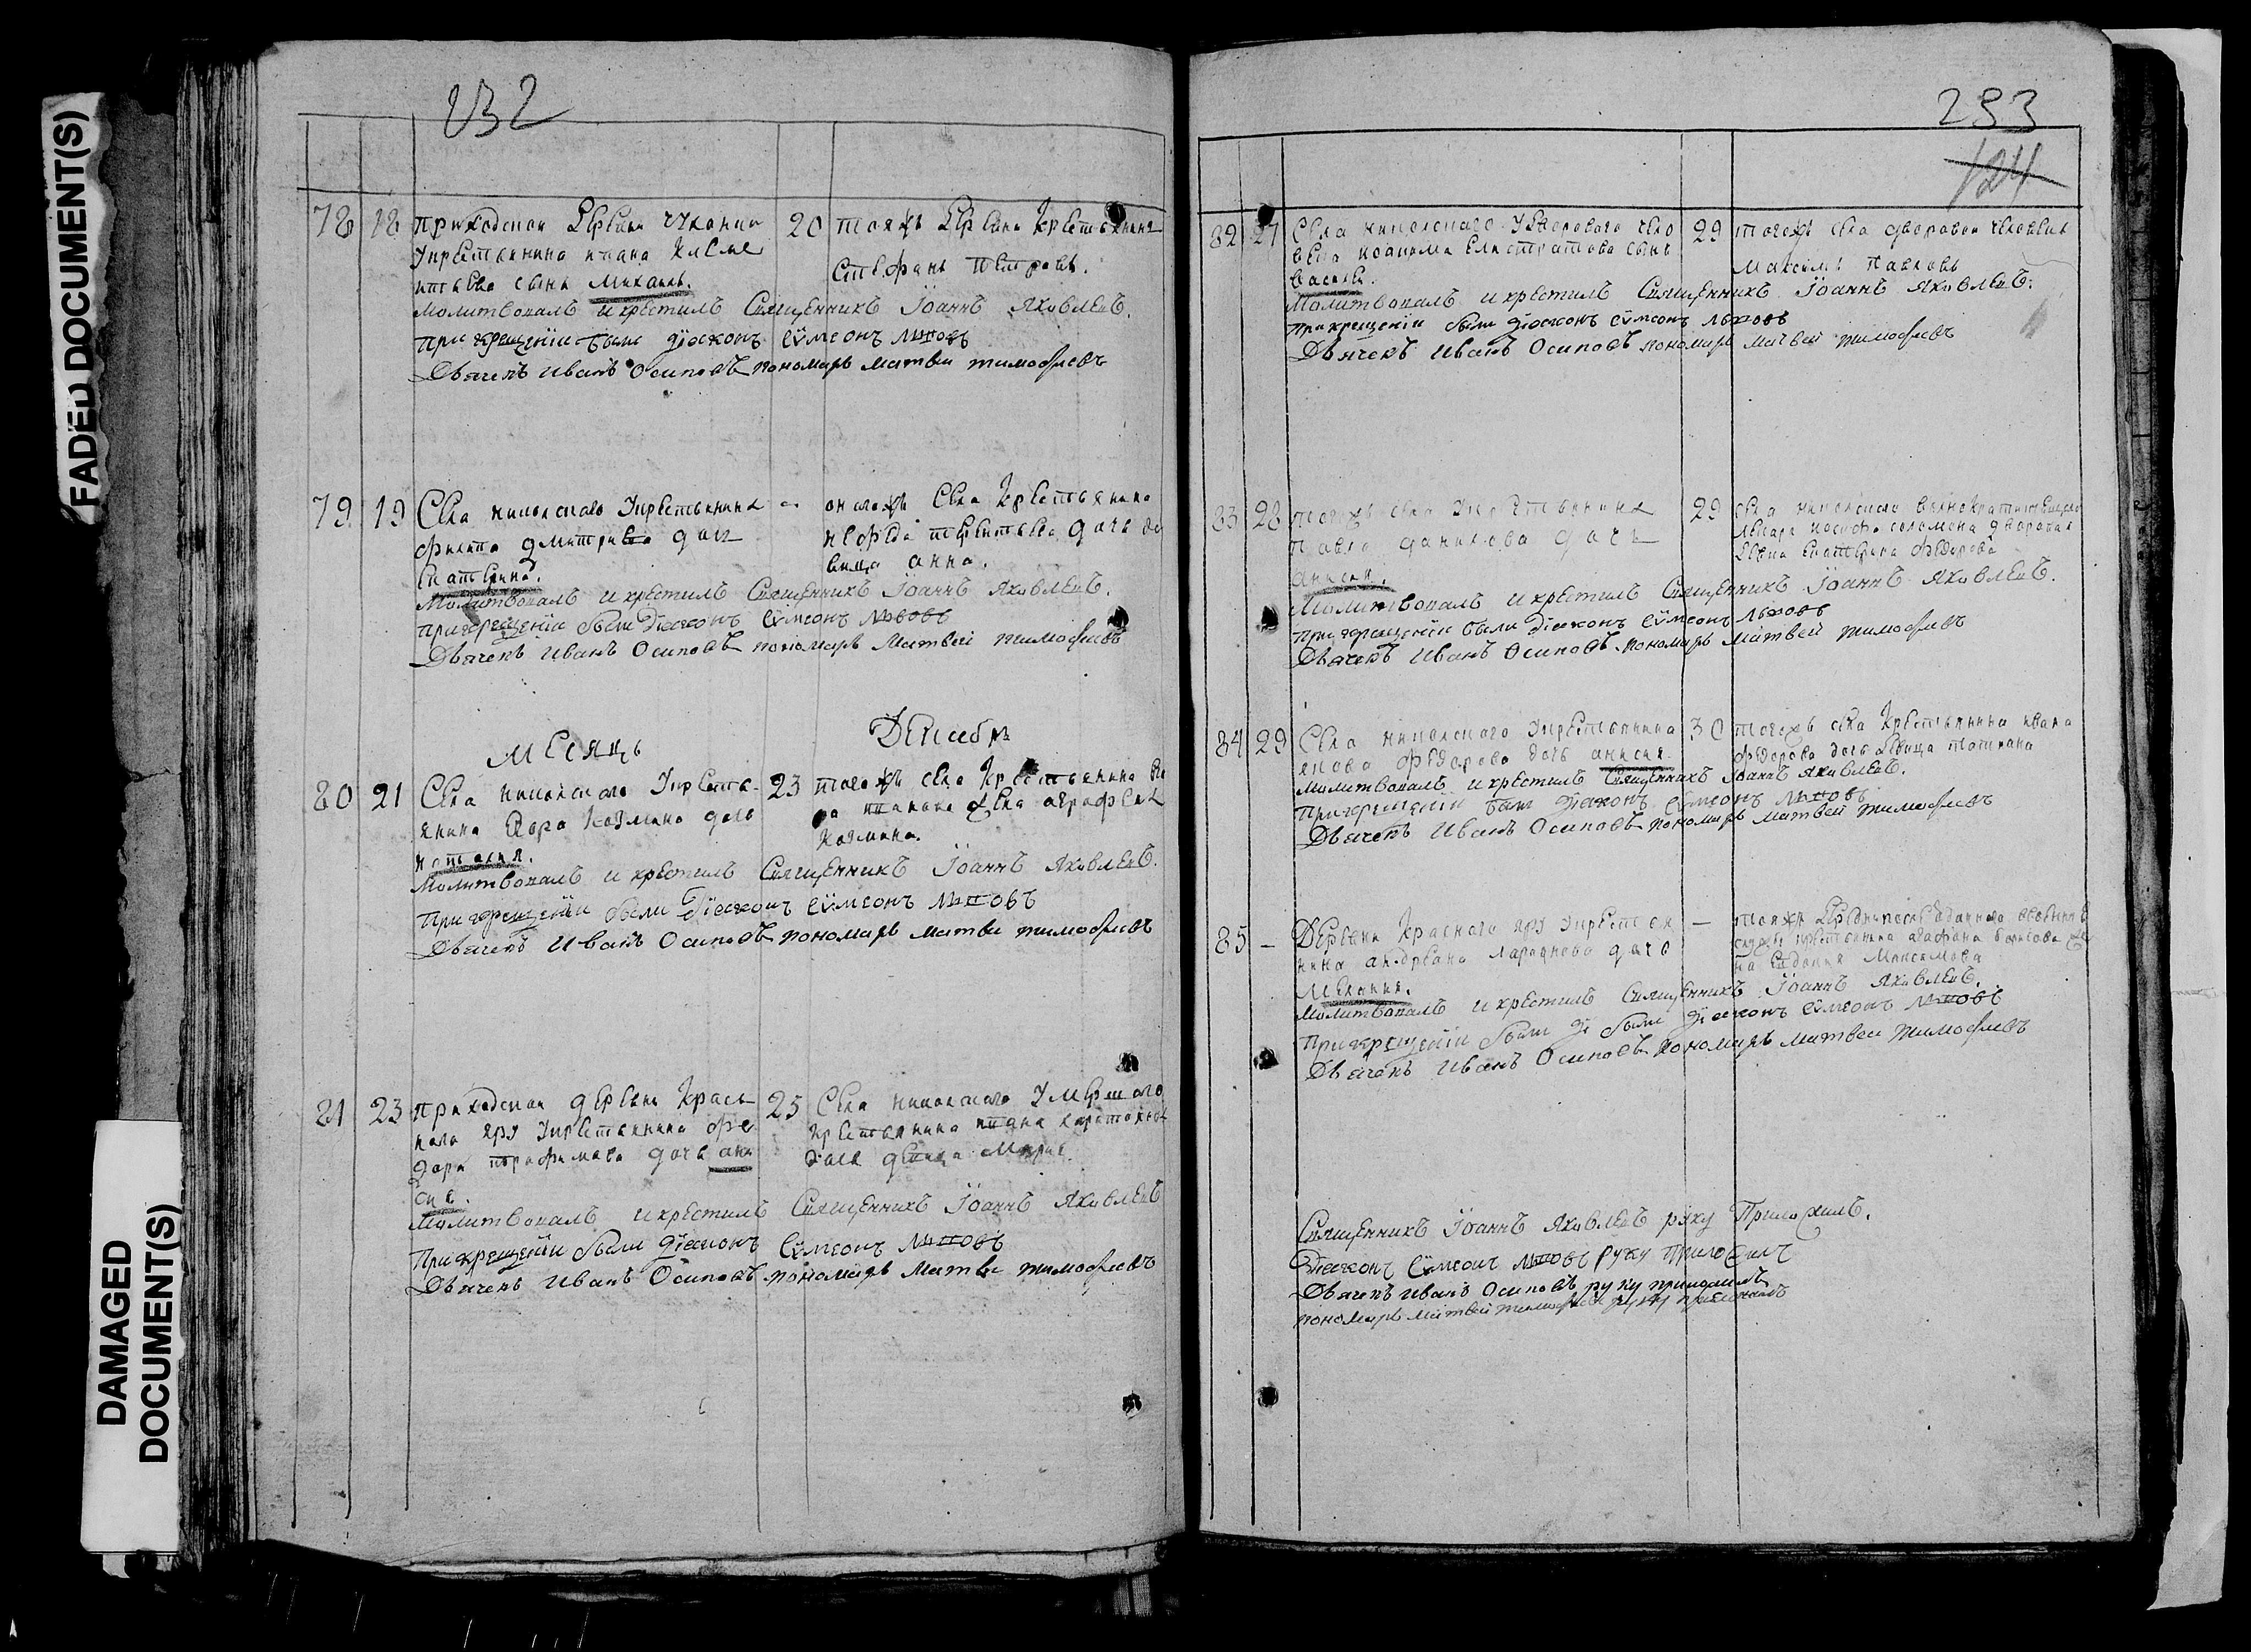 FADED DOCUMENT(S)
DAMAGED
DOCUMENT(S)
232
78 18 приходской деревни
укрестьянина ивана Климе
нтьева сынъ Михаилъ.
20 тояжъ деревни крестьянинъ
Стефанъ Петровъ.
Молитвовалъ и крестилъ Священникъ Іоаннъ Яковлевъ.
При крещеніи были діаконъ Сѵмеонъ Львовъ
Дьячекъ Иванъ Осиповъ пономарь Матвеи тимофеевъ
79 19 Села никольскаго укрестьянина
филипа дмитриева дочь
Екатерина.
оногожъ села крестьянина
дочь де
вица анна.
Молитвовалъ и крестилъ Священникъ Іоаннъ Яковлевъ.
При крещеніи были діаконъ Сѵмеонъ Львовъ
Дьячекъ Иванъ Осиповъ пономарь Матвей тимофеевъ
МЕсяцъ Декабрь
80 21 Села никольскаго укресть-
янина Козмина дочь
наталия.
23 тогожъ села крестьянина
жена аграфена
Козмина.
Молитвовалъ и крестилъ Священникъ Іоаннъ Яковлевъ.
При крещеніи были діаконъ Сѵмеонъ Львовъ
Дьячекъ Иванъ Осиповъ пономарь Матвеи тимофеевъ
81 23 приходской деревни Крас
наго яру укрестьянина фе
дора трофимова дочь ани
сия.
25 Села никольскаго умершаго
крестьянина ивана
дочь девица Мария.
Молитвовалъ и крестилъ Священникъ Іоаннъ Яковлевъ
При крещеніи были діаконъ Сѵмеонъ Львовъ
Дьячекъ Иванъ Осиповъ пономарь Матвеи тимофеевъ
233
124
82 27 Села никольскаго удвороваго чело
века иоакима Елистратова сынъ
Василеи.
29 тогожъ села дворовой человекъ
Максимъ Павловъ
Молитвовалъ и крестилъ Священникъ Іоаннъ Яковлевъ.
При крещеніи были діаконъ Сѵмеонъ Львовъ
Дьячекъ Иванъ Осиповъ пономарь матвей тимофеевъ
83 28 тогожъ села укрестьянина
Павла данилова дочь
анисия.
29 села никольскаго
лекаря иосифа соломона дворовая
девка Екатерина Федорова
Молитвовалъ и крестилъ Священникъ Іоаннъ Яковлевъ.
При крещеніи были діаконъ Сѵмеонъ Львовъ
Дьячекъ Иванъ Осиповъ пономарь Матвей тимофеевъ
84 29 Села никольскаго укрестьянина
якова Федорова дочь анисия.
30 тогожъ села крестьянина ивана
федорова дочь девица татиана
Молитвовалъ и крестилъ Священникъ Іоаннъ Яковлевъ.
При крещеніи были діаконъ Сѵмеонъ Львовъ
Дьячекъ Иванъ Осиповъ пономарь матвей тимофеевъ
85 – Деревни Краснаго яру укрестья
нина андреяна дочь
Мелания.
– тояжъ деревни
крестьянина агафона борисова же
на Евдокия Максимова
Молитвовалъ и крестилъ Священникъ Іоаннъ Яковлевъ.
При крещеніи были ді были діаконъ Сѵмеонъ Львовъ
Дьячекъ Иванъ Осиповъ пономарь матвеи тимофеевъ
Священникъ Іоаннъ Яковлевъ руку Приложилъ.
Діаконъ Сѵмеонъ Львовъ руку приложилъ
Дьячекъ Иванъ Осиповъ руку приложилъ
пономарь матвей тимофеевъ руку приложилъ